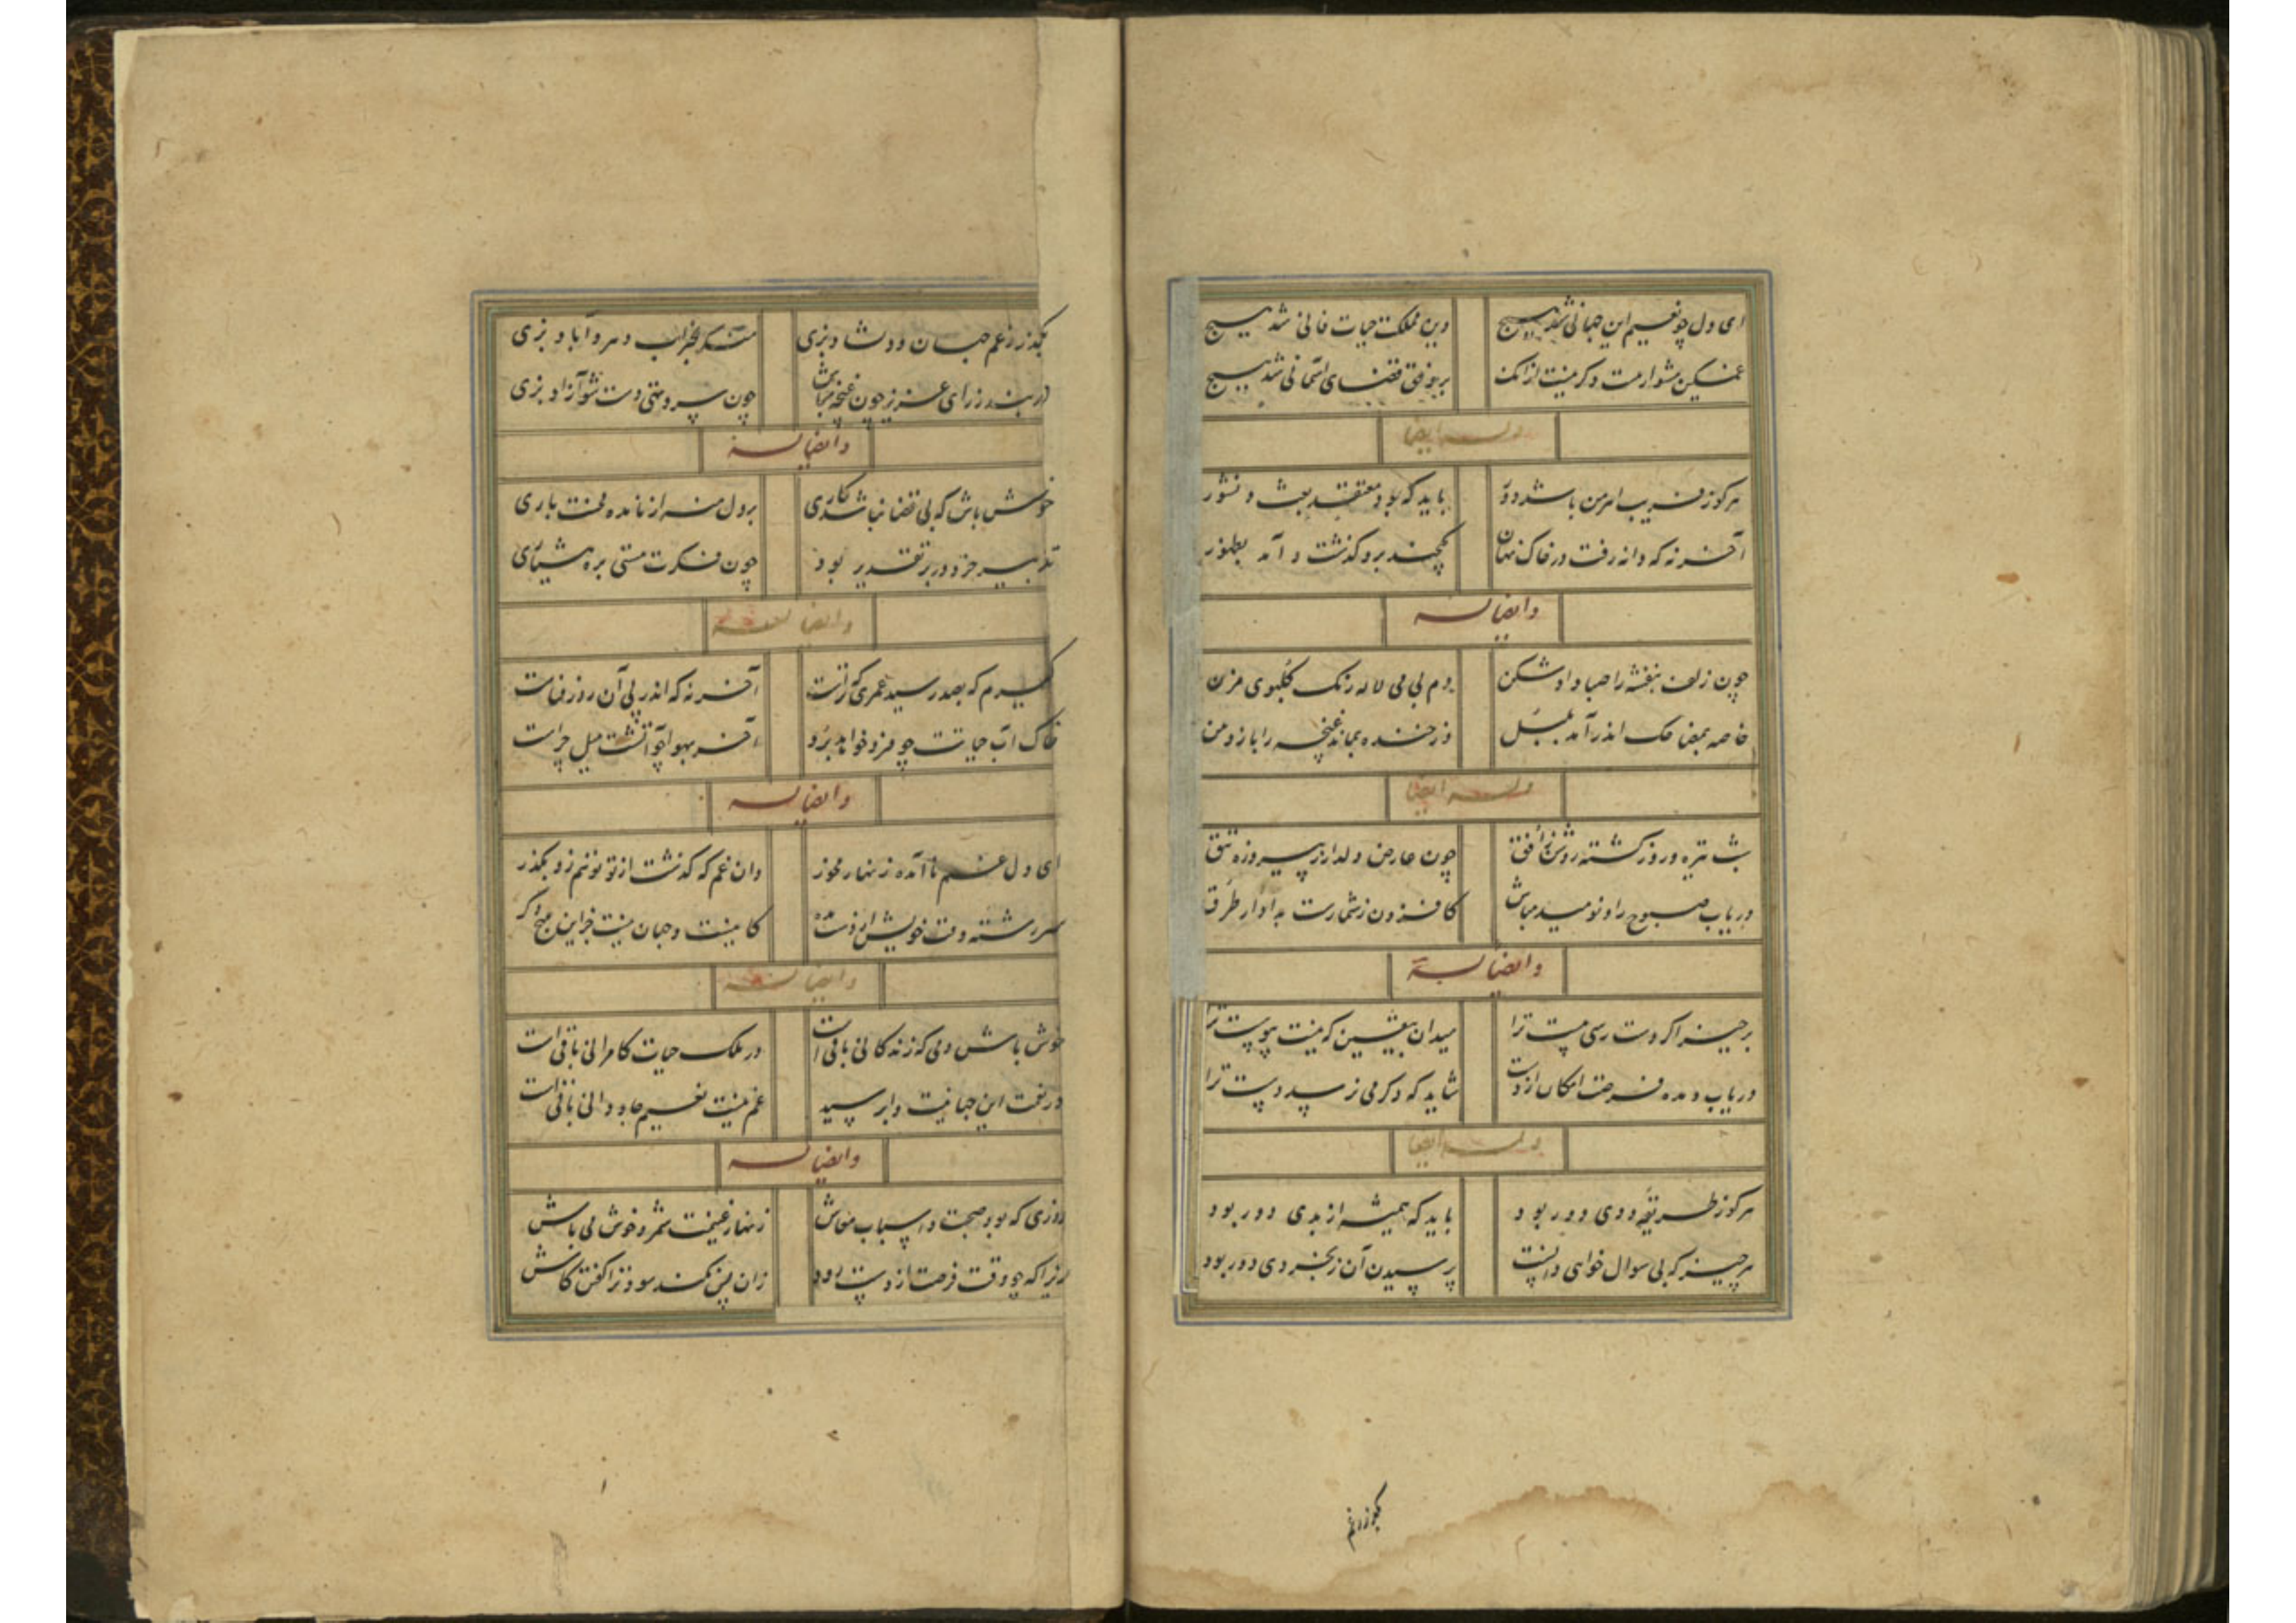 ای دل چو نعیم این جهانی شد هیچ وین مملکت حیات فانی شد هیچ
غمگین مشو ارمت دکر نیست ازانک بر وفق قضای آسمانی شد هیچ
وله ایضا
هرکو ز فریب اهرمن باشد دور باید که بود معتقد بعث و نشور
آخر نه که دانه رفت در خاک نهان یکچند برو گذشت و آمد بظهور
وایضا له
چون زلف بنفشه را صبا داد شکن دم بی می لاله رنک گلبوی مزن
خاصه که اندر آمد بلبل وز خنده بماند غنچه را باز دهن
وله ایضا
شب تیره و روز گشته روشن ز افق چون عارض دلدار ز پیروزه تتق
دریاب صبوح را و نومید مباش کافزون ز شمارست به ادوار طرق
وایضا له
برخیز اگر دست رسی هست ترا میدان بیقین که نیست پیوست ترا
دریاب و مده فرصت امکان از دست شاید که دکر می نرسد دست ترا
وله ایضا
هرکو ز طریقه ددی دور بود باید که همیشه از بدی دور بود
هر چیز که بی سوال خواهی دانست پرسیدن آن ز بخردی دور بود
بگذر ز غم
بگذر ز غم جهان و دلشاد بزی منکر بخراب دهر و آباد بزی
در بند زر ای عزیز چون غنچه مباش چون سرو تهی دست شو آزاد بزی
وایضا له
خوش باش که بی قضا نباشد کاری بر دل منه از نامده محنت باری
تدبیر خرد در بر تقدیر بود چون فکرت مستی بره هشیاری
وایضا له
گیرم که بصد رسید عمری که تراست آخر نه که اندر پی آن روز فناست
خاک آب حیاتت چو فرو خواهد برد آخر بهوا چو آتشت میل چراست
وایضا له
ای دل غم ناآمده زنهار مخور وان غم که گذشت از تو توهم زو بگذر
سر رشته وقت خویش از دست مده کا نیست و جهان نیست جز این هیچ دکر
وایضا له
خوش باش دمی که زندگانی باقی است در ملک حیات کامرانی باقی است
ور رفت این جهانیت وا پرسید غم نیست نعیم جاودانی باقی است
وایضا له
روزی که بود صحت و اسباب معاش زنهار غنیمت شمر و خوش می باش
زیرا که چو وقت فرصت از دست رود زان پس نکند سود ترا گفتن کاش